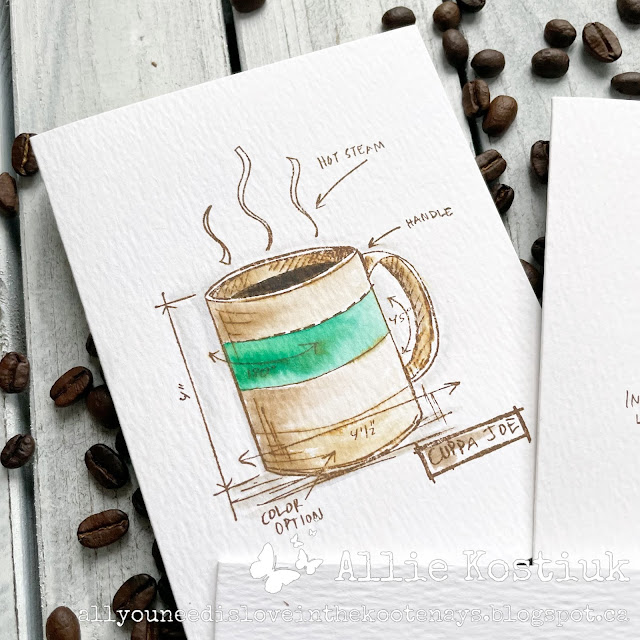 HOT STEAM
HANDLE
4"
4'½"
CUPPA JOE
COLOR
OPTION
IN
Allie Kostiuk
allyouneedisloveinthekootenays.blogspot.ca